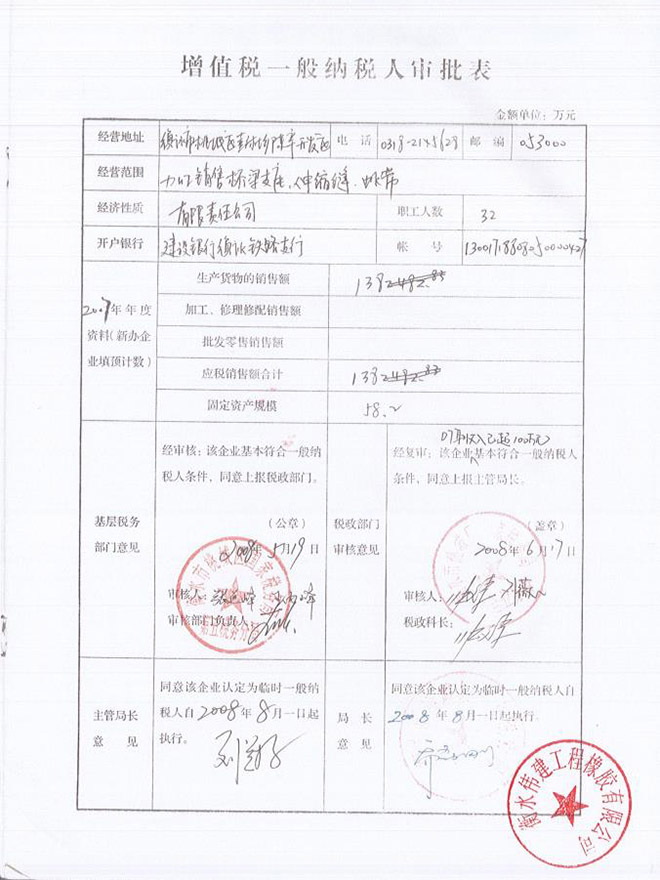 增值税一般纳税人审批表
金额单位：万元
经营地址 衡水市桃城区 开发区 电话 0318-2145628 邮编 053000
经营范围 加工销售桥梁支座、伸缩缝、止水带
经济性质 有限责任公司 职工人数 32
开户银行 建设银行衡水铁路支行 帐号
2007年年度
资料(新办企
业填预计数)
生产货物的销售额 138
加工、修理修配销售额
批发零售销售额
应税销售额合计 138
固定资产规模 58.2
基层税务
部门意见
经审核：该企业基本符合一般纳
税人条件，同意上报税政部门。
(公章)
2008年5月19日
审核人：
审核部门负责人：
税政部门
审核意见
07年收入已超100万元
经复审：该企业基本符合一般纳税人
条件，同意上报主管局长。
(盖章)
2008年6月17日
审核人：
税政科长：
主管局长
意见
同意该企业认定为临时一般纳
税人自2008年8月一日起
执行。
局长
意见
同意该企业认定为临时一般纳税人自
2008年8月一日起执行。
衡水伟建工程橡胶有限公司